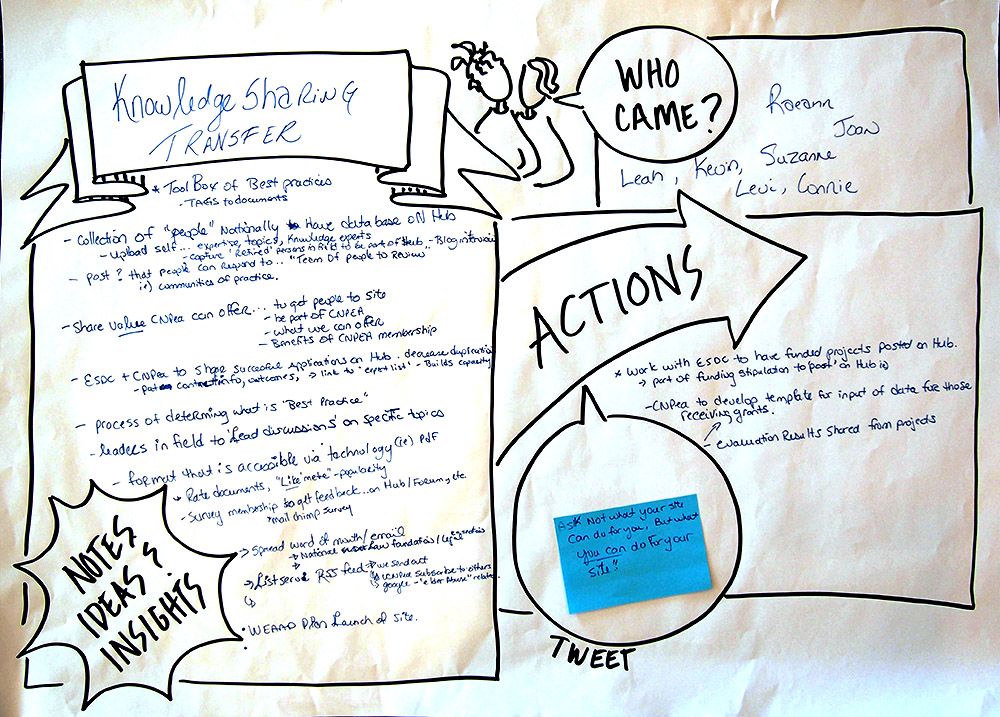 Knowledge Sharing
TRANSFER
WHO
CAME?
Raeann
Joan
Leah, Kevin, Suzanne
Levi, Connie
* Tool Box of Best practices
- TAGS to documents
- Collection of "people" Nationally to Have database on Hub
- Upload self... expertise, topics, Knowledge experts
- capture 'Retired' persons in field to be part of Hub - Blog interview
- post ? that people can respond to... "Team of people to Review"
ie) communities of practice.
- Share value CNPea can offer... to get people to site
- be part of CNPEA
- what we can offer
- Benefits of CNPEA membership
- ESDC + CNPea to share successful applications on Hub. decrease duplication
- contact info, outcomes, → link to 'expert list' - Builds capacity
- process of determining what is "Best Practice"
- leaders in field to 'Lead discussions' on specific topics
- format that is accessible via technology (ie) PDF
* Rate documents, "Like meter" - popularity
- Survey membership to get feedback... on Hub/Forum, etc
* mail chimp survey
→ Spread word of mouth/email
→ National Law foundation/Legal
→ List serve RSS feed → we send out
CNPea subscribe to others
google - "elder Abuse" related
• WEAAD Plan Launch of site.
NOTES,
IDEAS &
INSIGHTS
ACTIONS
* Work with ESDC to have funded projects posted on Hub.
→ part of funding stipulation to 'post' on Hub
- CNPea to develop template for input of data for those
receiving grants.
- evaluation Results shared from projects
Ask Not what your site
can do for you, But what
you can do for your
site!"
TWEET